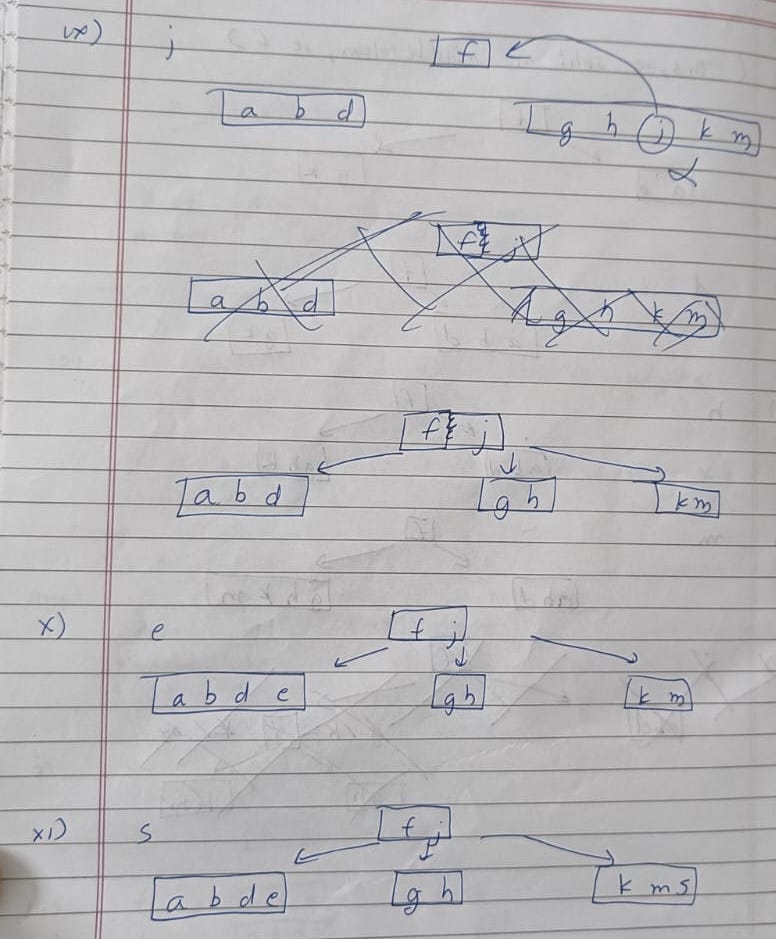 ix) j f
a b d g h j k m
α
f j
a b d g h k m
f j
a b d g h k m
x) e f j
a b d e g h k m
xi) s f j
a b d e g h k m s